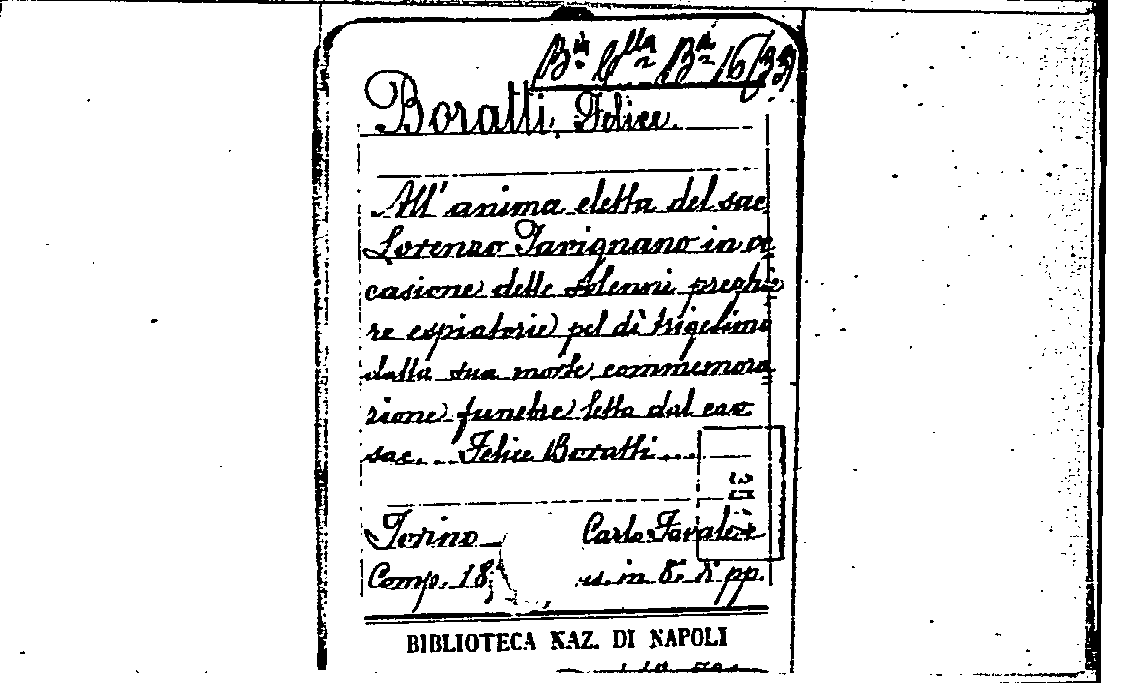 Boratti, Felice.
All' anima eletta del sac.
Lorenzo Tavignano in oc
casione delle solenni preghie
re espiatorie pel dì trigesimo
dalla sua morte commemora
zione funebre letta dal cav.
sac. Felice Boratti
Torino Carlo Favale e
Comp. 18 in 8. di pp.
BIBLIOTECA NAZ. DI NAPOLI